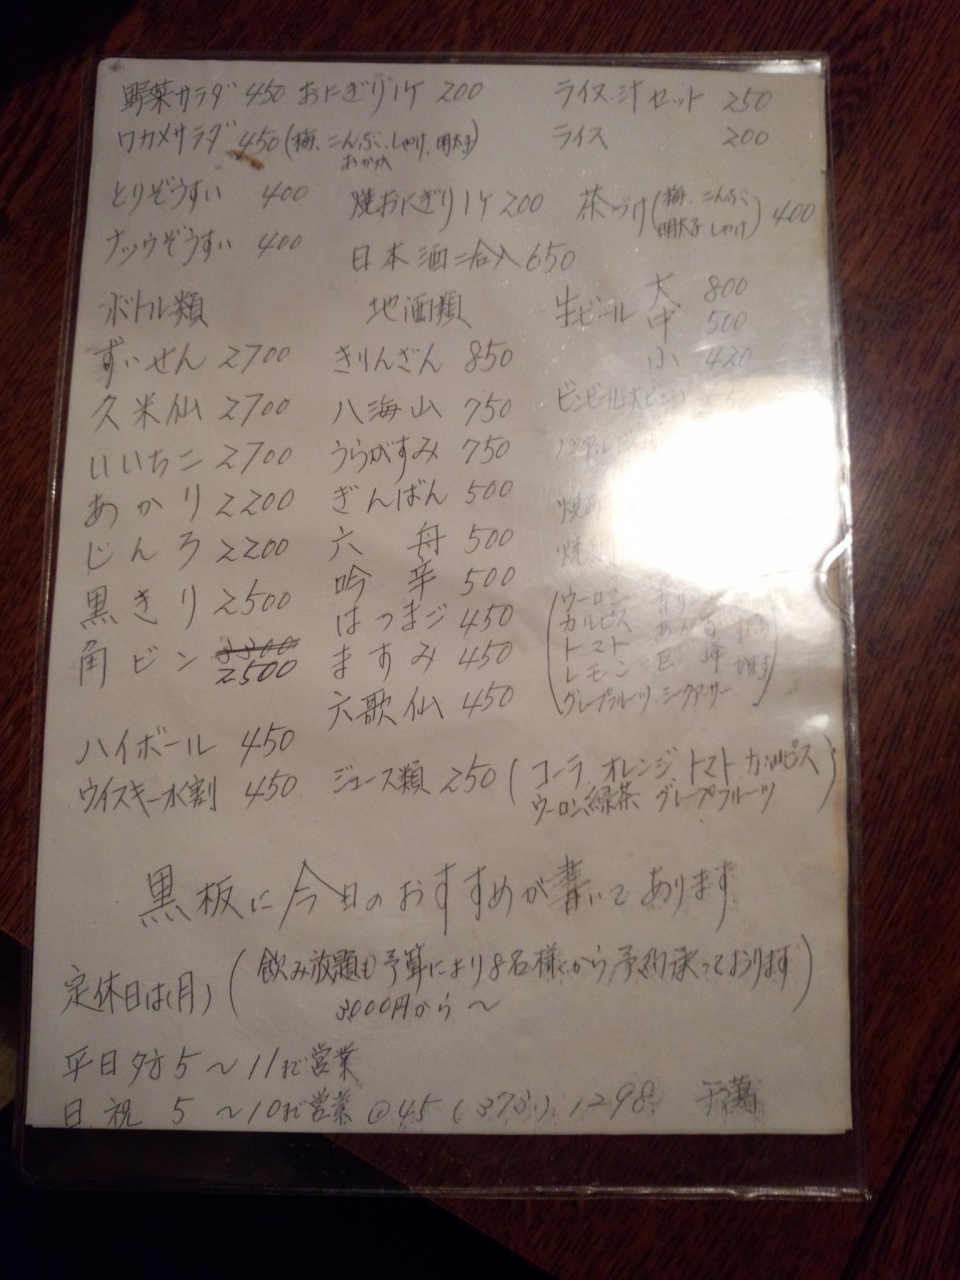 野菜サラダ 450 おにぎり1ケ 200 ライス、汁セット 250
ワカメサラダ 450 (梅、こんぶ、しゃけ、明太子 おかか) ライス 200
とりぞうすい 400 焼おにぎり1ケ 200 茶づけ(梅、こんぶ、明太子 しゃけ) 400
ナットウぞうすい 400 日本酒二合入 650
ボトル類 地酒類 生ビール 大 800
中 500
小 420
ずいせん 2700 きりんざん 850
久米仙 2700 八海山 750 ビンビール
いいちこ 2700 うらがすみ 750
あかり 2200 ぎんばん 500
じんろ 2200 六舟 500
黒きり 2500 吟辛 500
角ビン 3300 2500 はつまご 450
ますみ 450
六歌仙 450
(ウーロン
カルピス
トマト
レモン 巨峰
グレープフルーツ、シークアーサー)
ハイボール 450
ウイスキー水割 450 ジュース類 250 (コーラ、オレンジ、トマト、カルピス
ウーロン、緑茶 グレープフルーツ)
黒板に今日のおすすめが書いてあります
定休日は(月) (飲み放題も予算により8名様くから予約承っております
3000円から〜)
平日夕方5〜11まで営業
日、祝 5〜10まで営業 @45(373)1298 千萬